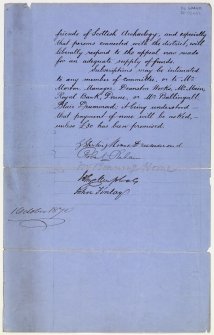 friends of Scottish Archæology, and especially
that persons connected with the district, will
liberally respond to the appeal now made
for an adequate supply of funds.
Subscriptions may be intimated
to any member of committee, or to Mr
Manager, Deanston Works, Mr
Royal Bank, Doune, or Mr Ballingall,
Blair Drummond; it being understood
that payment of none will be asked,
unless £50 has been promised.
Home Drummond
John Finlay
1 October 1870